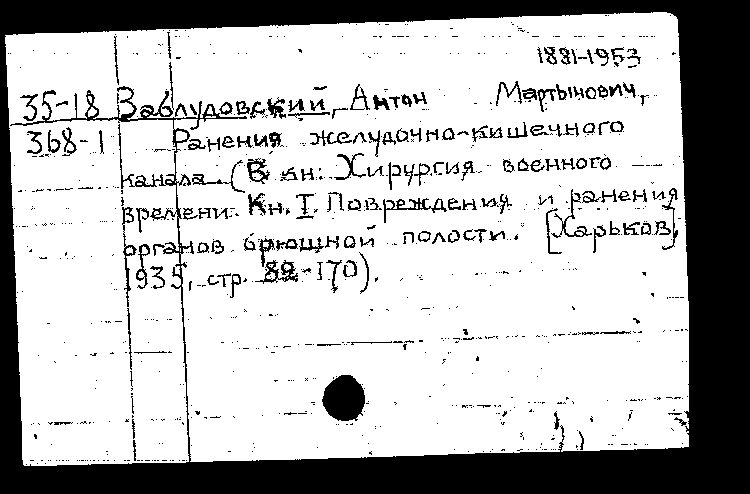 1881-1953
35-18 Заблудовский, Антон Мартынович,
368-1 Ранения желудочно-кишечного
канала. (В кн: Хирургия военного
времени. Кн. I. Повреждения и ранения
органов брюшной полости. [Харьков],
1935, стр. 82-170).